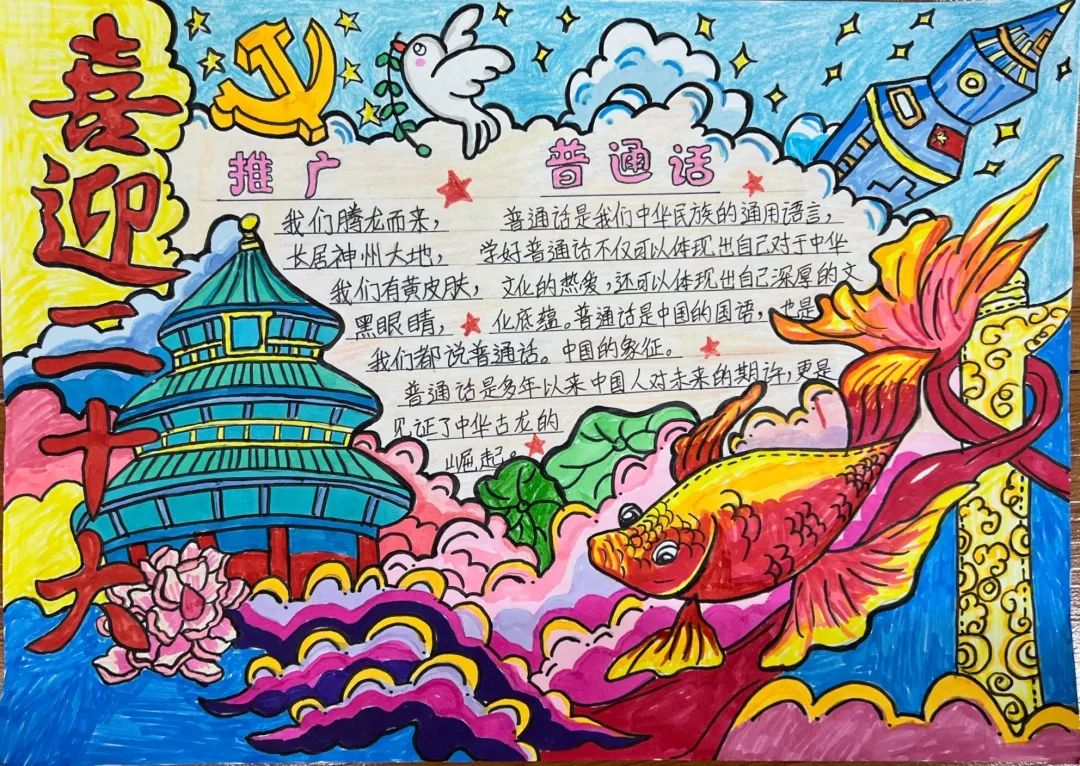 喜迎二十大
推广 普通话
我们腾龙而来，
长居神州大地，
我们有黄皮肤，
黑眼睛，
我们都说普通话。
普通话是我们中华民族的通用语言，
学好普通话不仅可以体现出自己对于中华
文化的热爱，还可以体现出自己深厚的文
化底蕴。普通话是中国的国语，也是
中国的象征。
普通话是多年以来中国人对未来的期许，更是
见证了中华古龙的
崛起。